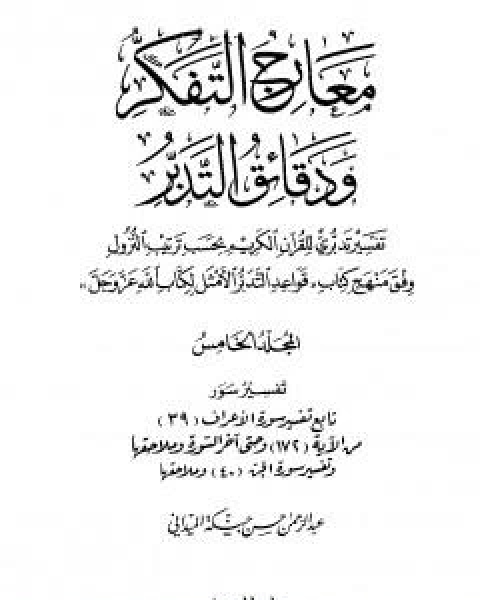 مَعَارِجُ التَّفَكُّرِ
وَدَقَائِقُ التَّدَبُّرِ
تَفْسِيرٌ تَدَبُّرِيٌّ لِلْقُرْآنِ الْكَرِيمِ بِحَسَبِ تَرْتِيبِ النُّزُولِ
وِفْقَ مَنْهَجِ كِتَابِ «قَوَاعِدِ التَّدَبُّرِ الْأَمْثَلِ لِكِتَابِ اللهِ عَزَّ وَجَلَّ»
المجَلّدُ الخامِسُ
تَفْسِيرُ سُوَر
تابع تفسير سورة الأعراف (٣٩)
من الآية (١٧٢) وحتى آخر السورة وملاحقها
وتفسير سورة الجن (٤٠) وملاحقها
عبد الرحمن حسن حبنّكة الميداني